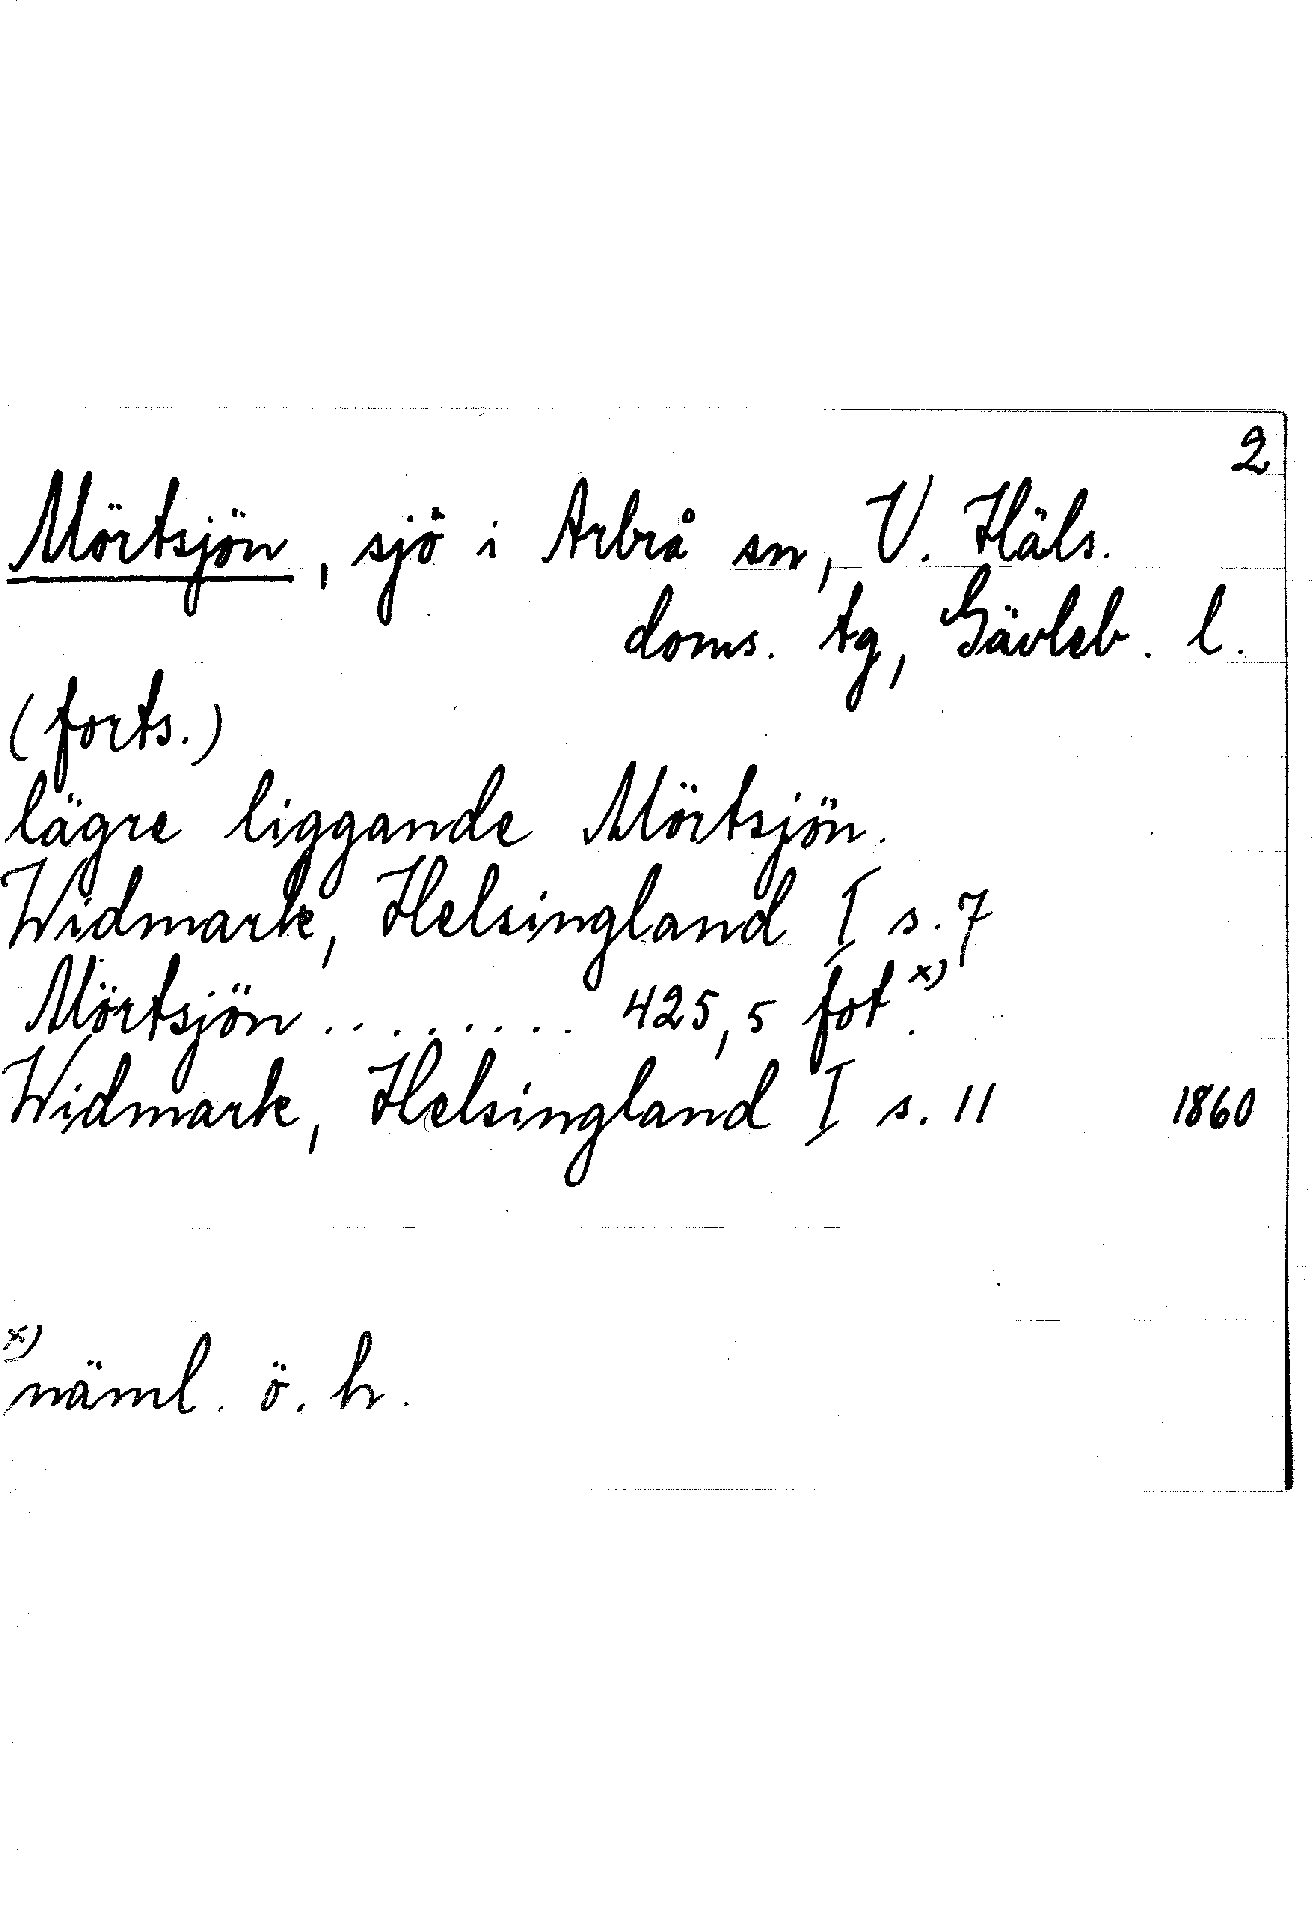 2
Mörtsjön, sjö i Arbrå sn, V. Häls.
doms. tg, Gävleb. l.
(forts.)
lägre liggande Mörtsjön.
Widmark, Helsingland I s. 7
Mörtsjön ........ 425,5 fot x).
Widmark, Helsingland I s. 11 1860
x)
näml. ö. h.